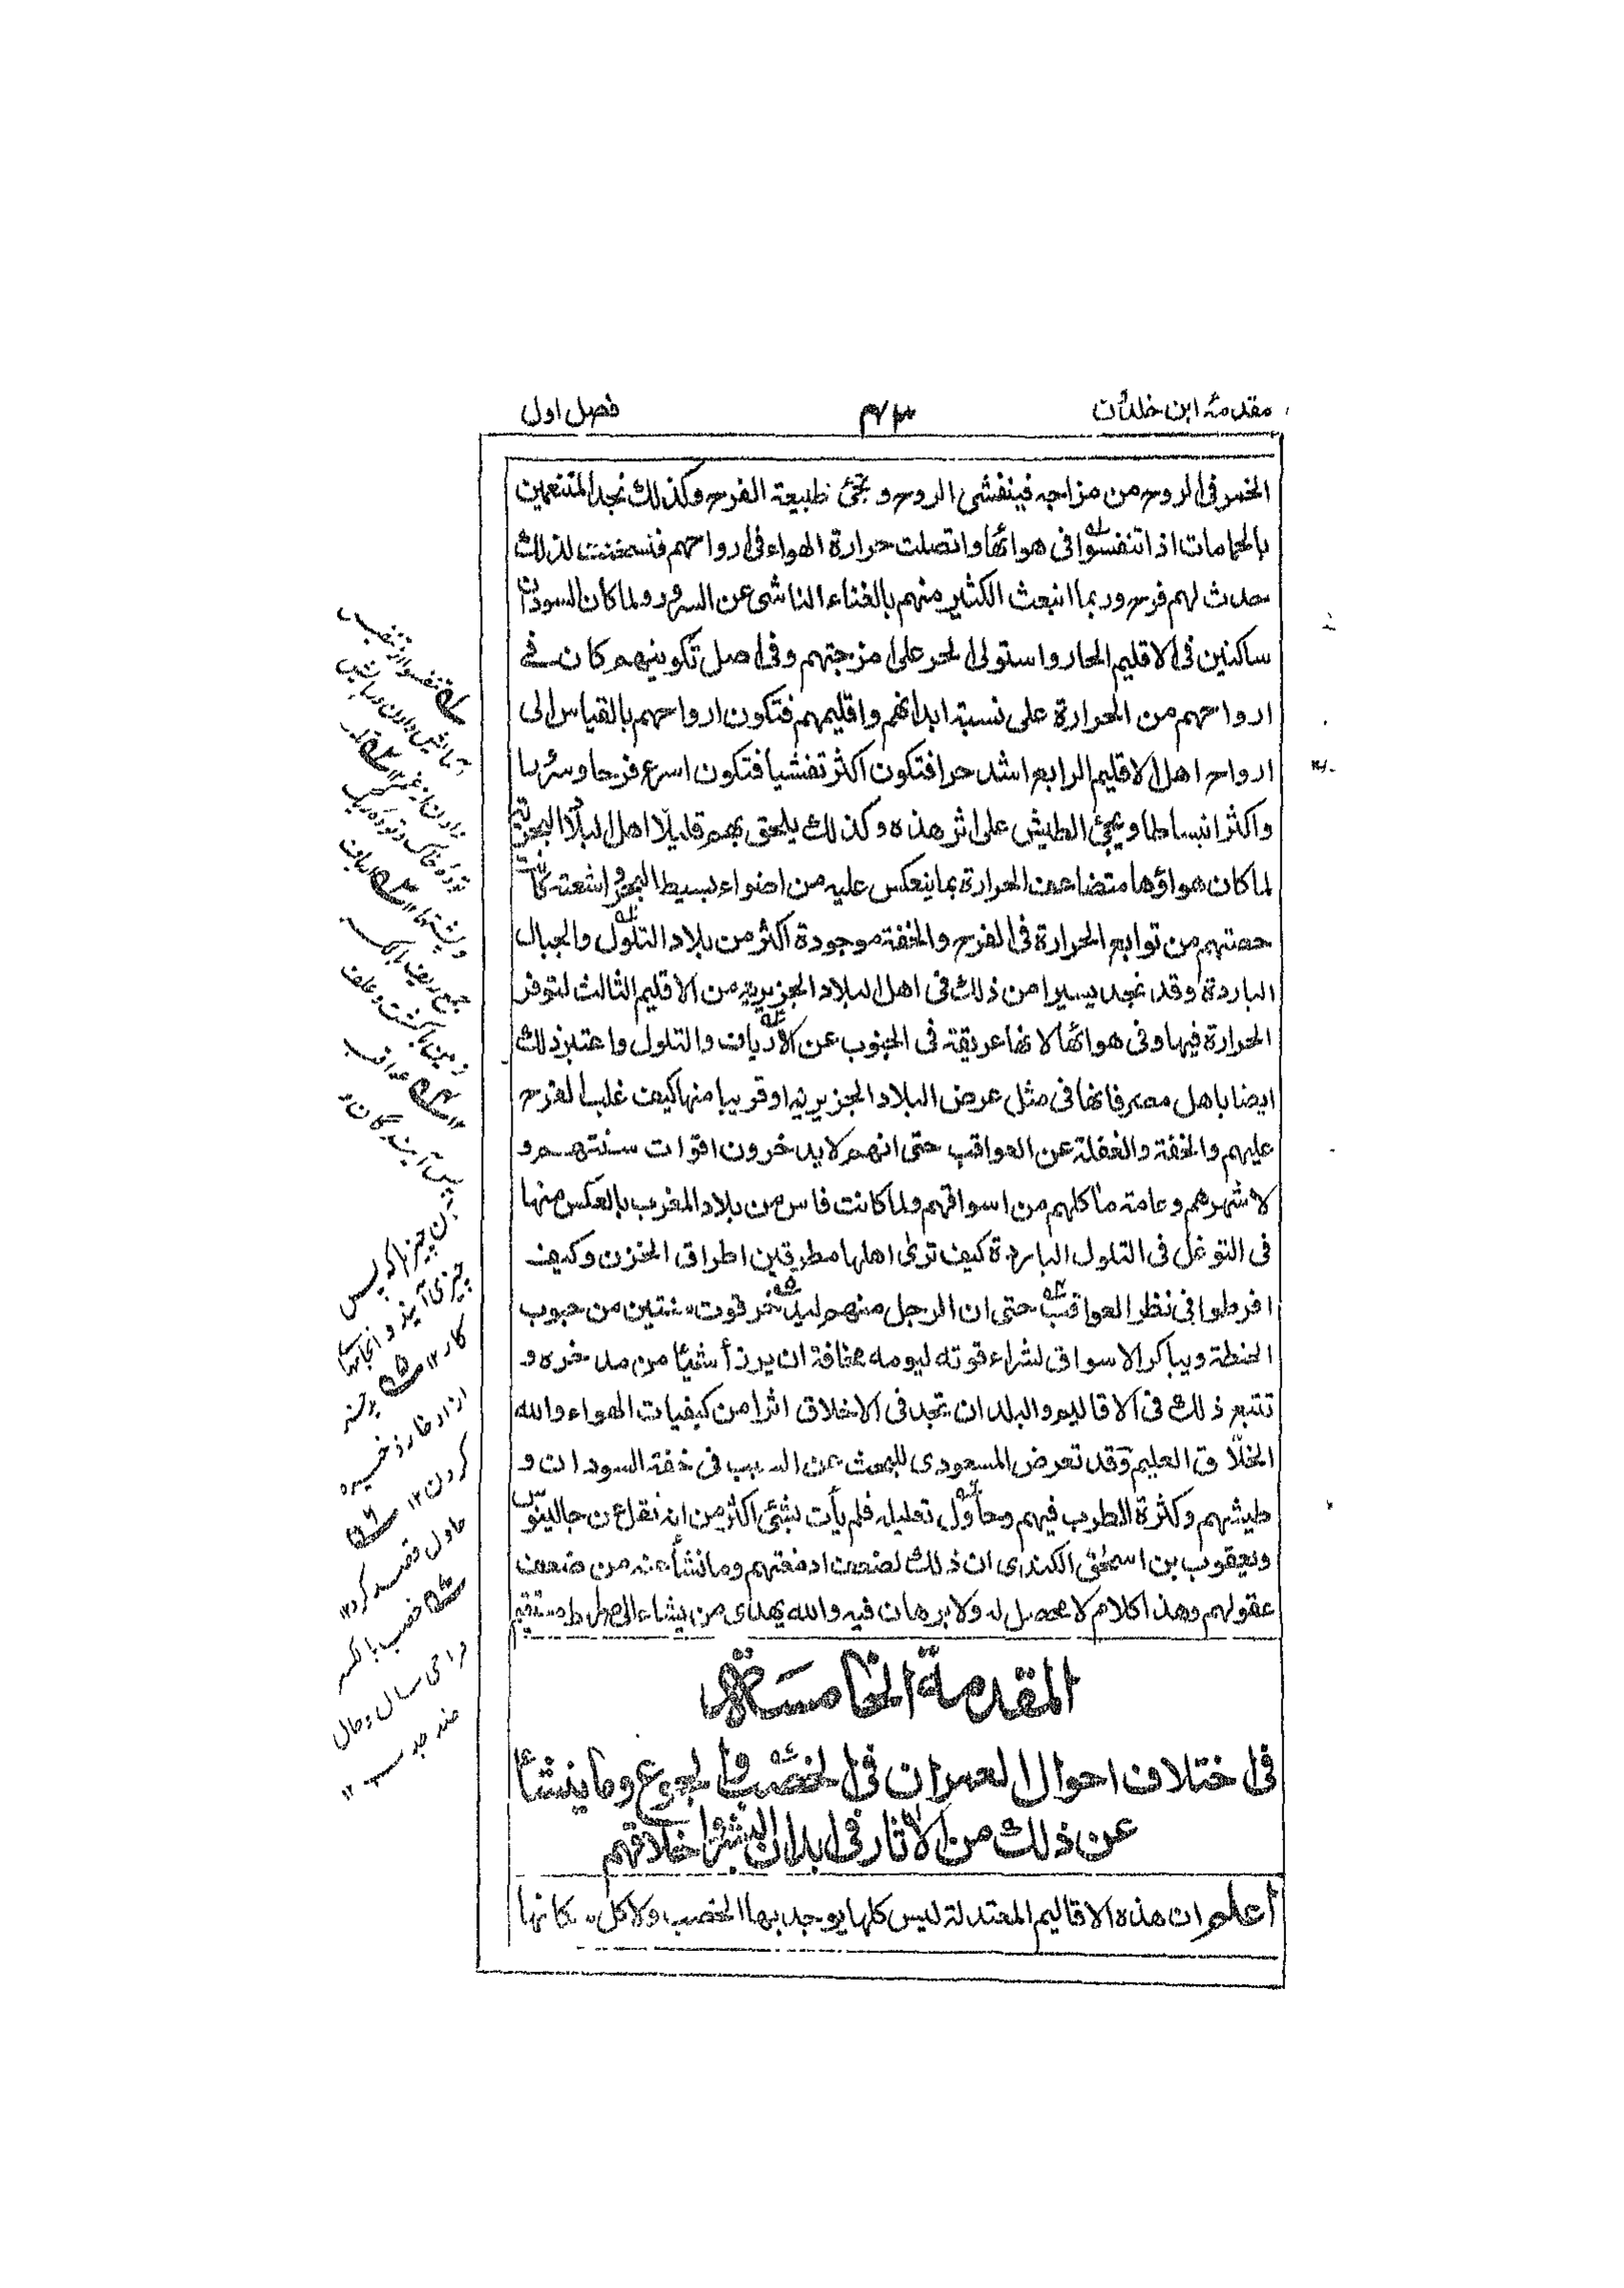 مقدمۂ ابن خلدون
فصل اول
الخمر فى الروح من مزاجه فيتفشى الروح و تجئ طبيعة الفرح وكذلك نجد المتنعمين
بالحمامات اذا تنفسوا فى هوائها واتصلت حرارة الهواء فى ارواحهم فتسخنت لذلك
حدث لهم فرح وربما انبعث الكثير منهم بالغناء الناشئ عن السرور ولما كان السودان
ساكنين فى الاقليم الحار واستولى الحر على امزجتهم وفى اصل تكوينهم كان فے
ارواحهم من الحرارة على نسبة ابدانهم واقليمهم فتكون ارواحهم بالقياس الى
ارواح اهل الاقليم الرابع اشد حرا فتكون اكثر تفشيا فتكون اسرع فرحا وسرورا
واكثر انبساطا ويجئ الطيش على اثر هذه وكذلك يلحق بهم قليلا اهل البلاد البحرية
لما كان هواؤها متضاعف الحرارة بما ينعكس عليه من اضواء بسيط البحر واشعته كانت
حصتهم من توابع الحرارة فى الفرح والخفة موجودة اكثر من بلاد التلول والجبال
الباردة وقد نجد يسيرا من ذلك فى اهل البلاد الجزيرية من الاقليم الثالث لتوفر
الحرارة فيها وفى هوائها لانها عريقة فى الجنوب عن الارياف والتلول واعتبر ذلك
ايضا باهل مصر فانها فى مثل عرض البلاد الجزيرية او قريبا منها كيف غلب الفرح
عليهم والخفة والغفلة عن العواقب حتى انهم لا يدخرون اقوات سنتهم و
لا شهرهم وعامة ماكلهم من اسواقهم ولما كانت فاس من بلاد المغرب بالعكس منها
فى التوغل فى التلول الباردة كيف ترى اهلها مطرقين اطراق الحزن وكيف
افرطوا فى نظر العواقب حتى ان الرجل منهم ليدخر قوت سنتين من حبوب
الحنطة ويباكر الاسواق لشراء قوته ليومه مخافة ان يرزأ شيئا من مدخره و
تتبع ذلك فى الاقاليم والبلدان تجد فى الاخلاق اثرا من كيفيات الهواء والله
الخلّاق العليم وقد تعرض المسعودى للبحث عن السبب فى خفة السودان و
طيشهم وكثرة الطرب فيهم وحاول تعليله فلم يأت بشئى اكثر من انه نقل عن جالينوس
ويعقوب بن اسحٰق الكندى ان ذلك لضعف ادمغتهم وما نشأ عنه من ضعف
عقولهم وهذا كلام لا محصل له ولا برهان فيه والله يهدى من يشاء الى صراط مستقيم
المقدمة الخامسة
فى اختلاف احوال العمران فى الخصب والجوع وما ينشأ
عن ذلك من الاثار فى ابدان البشر واخلاقهم
اعلم ان هذه الاقاليم المعتدلة ليس كلها يوجد بها الخصب ولا كل سكانها
چیزی آیند و انجامہا
کار ۱۲
کردن ۱۲
حاول قصد کرد ۱۲
خصب بالکسر
فراخی سال و حال
ضد جدب ۱۲